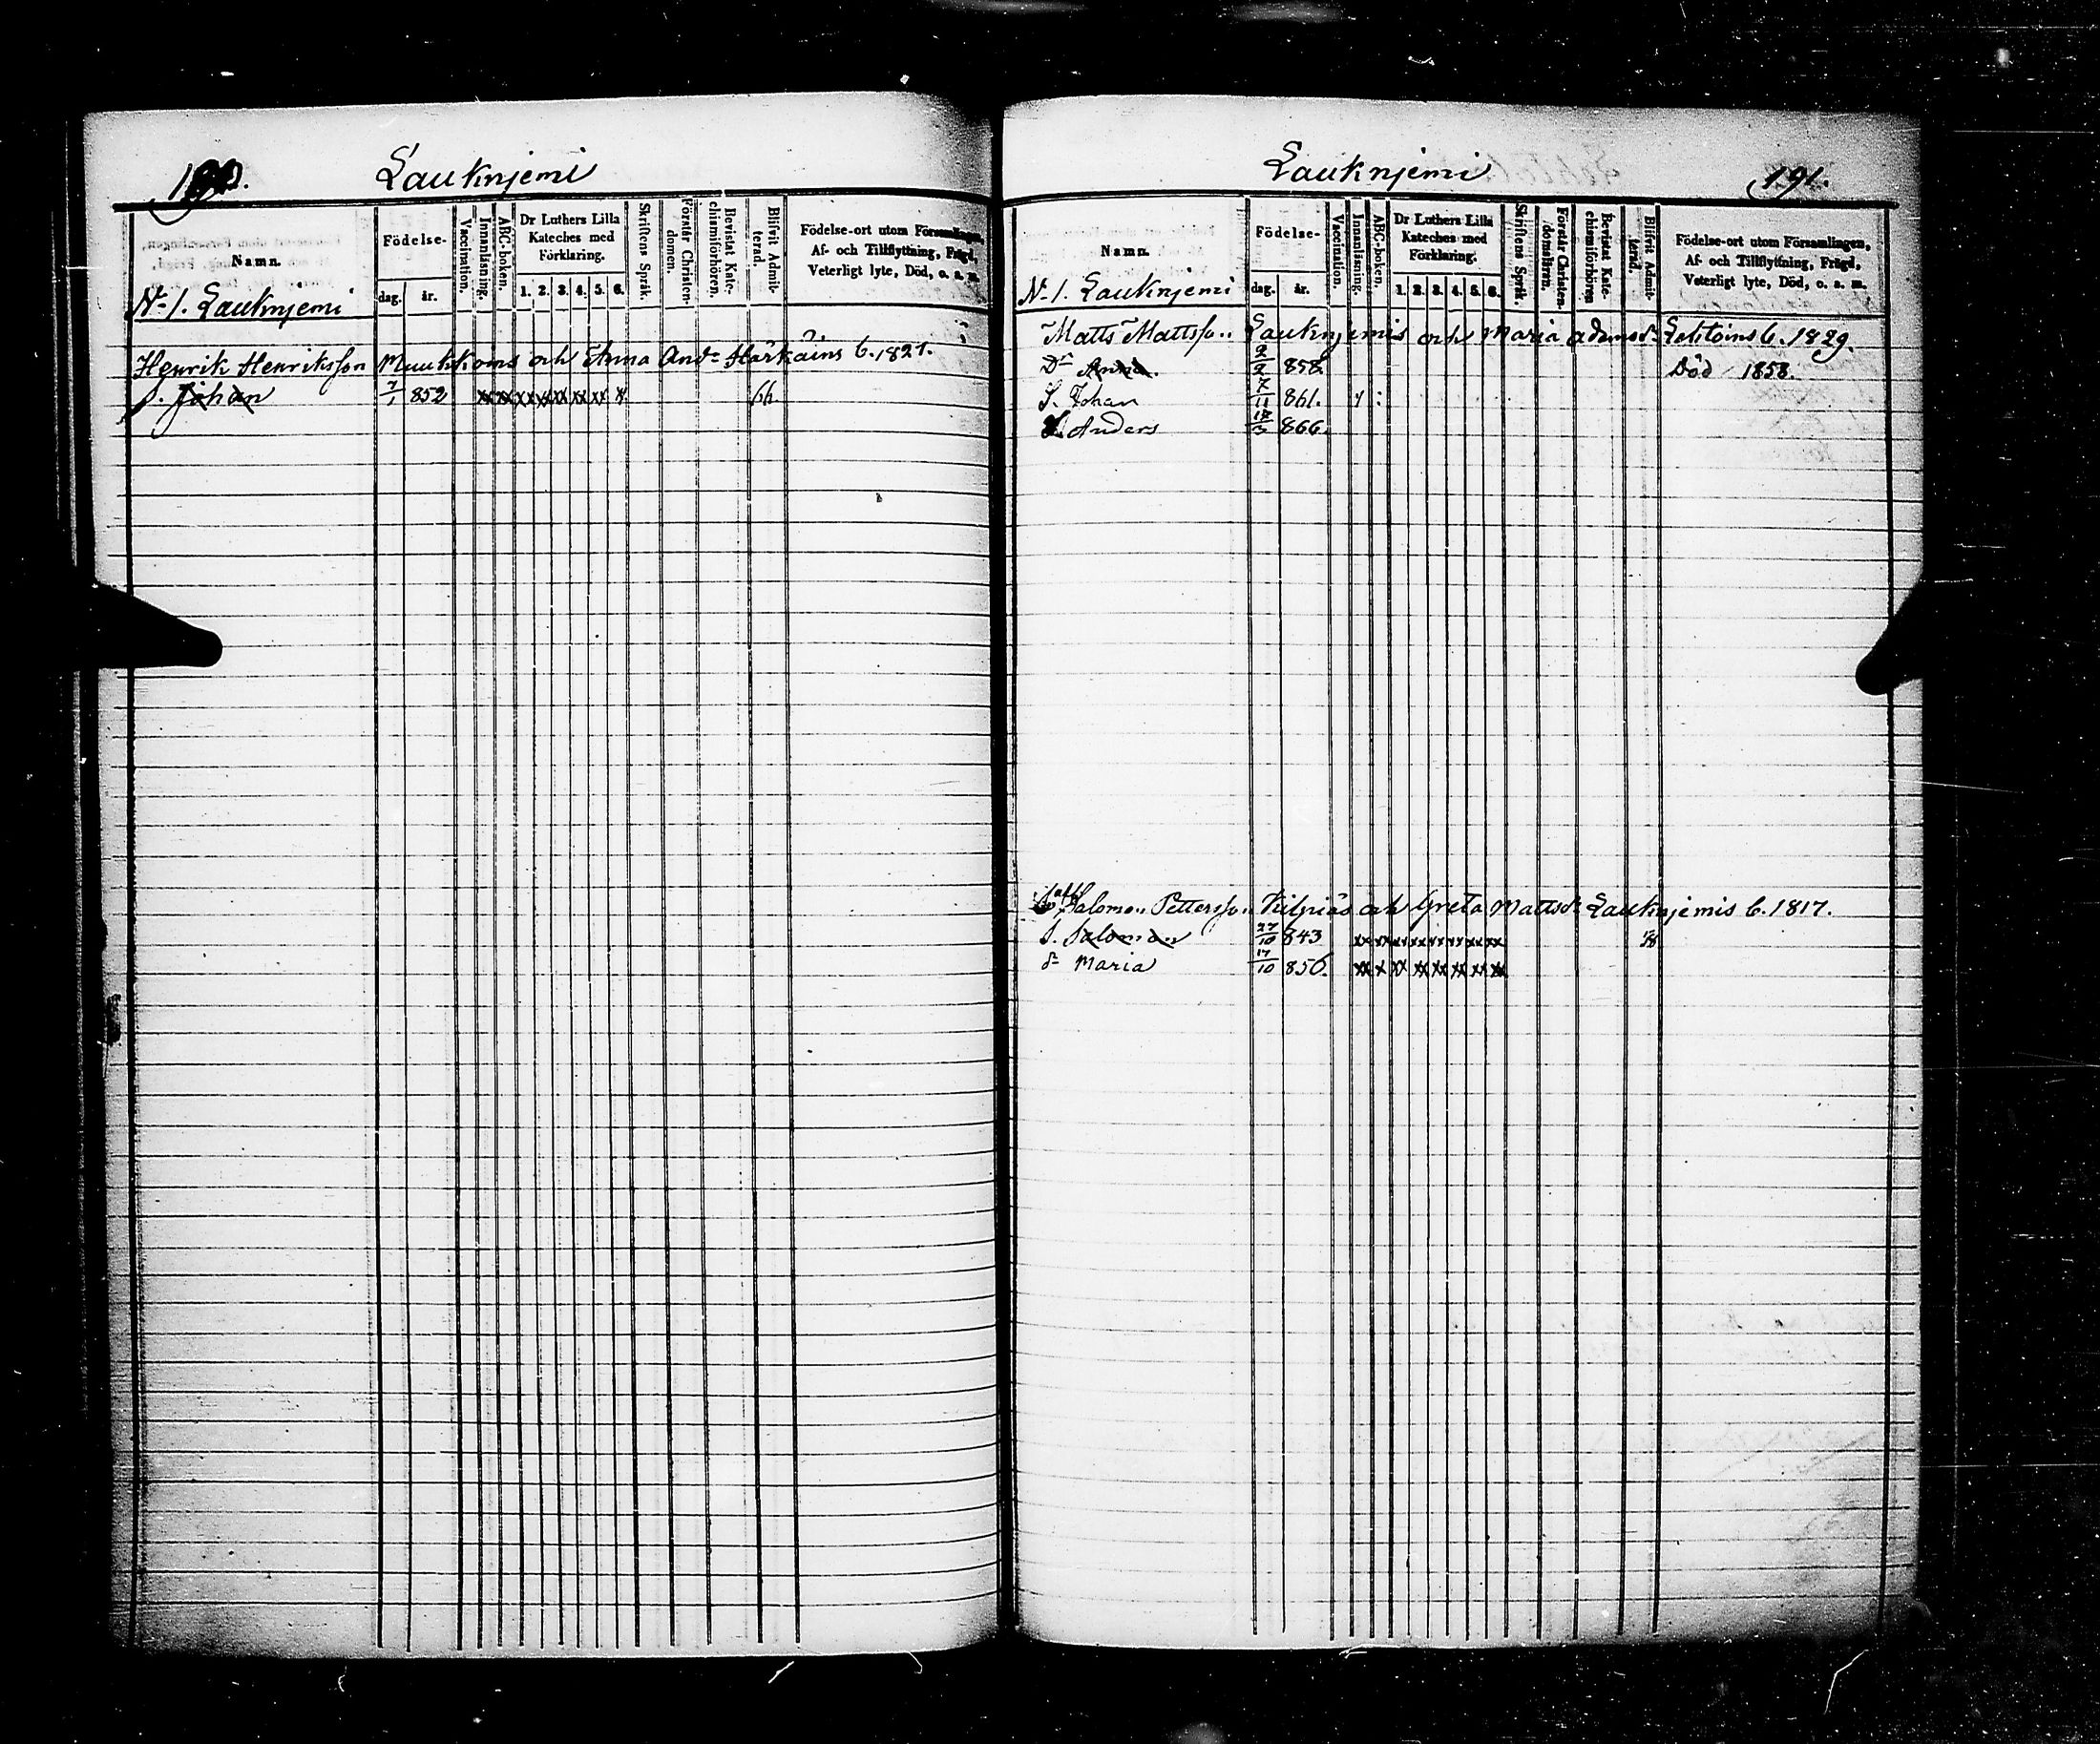 190.
Lauknjemi
Namn.
Födelse-
dag.
år.
Vaccination.
Innanläsning.
ABC-boken.
Dr Luthers Lilla
Kateches med
Förklaring.
1. 2. 3. 4. 5. 6.
Skriftens Språk.
Förstår Christen-
domen.
Bevistat Kate-
chismiförhören.
Blifvit Admit-
terad.
Födelse-ort utom Församlingen,
Af- och Tillflyttning, Frägd,
Veterligt lyte, Död, o. s. m.
No 1. Lauknjemi
Henrik Henriksson Muukkoins och Anna Andsr Härkäins b. 1821.
S. Johan 7/1 852 xx xx xx xx xx xx xx x
Lauknjemi
191.
Namn.
Födelse-
dag.
år.
Vaccination.
Innanläsning.
ABC-boken.
Dr Luthers Lilla
Kateches med
Förklaring.
1. 2. 3. 4. 5. 6.
Skriftens Språk.
Förstår Christen-
domsläran.
Bevistat Kate-
chismiförhören
Blifvit Admit-
terad.
Födelse-ort utom Församlingen,
Af- och Tillflyttning, Frägd,
Veterligt lyte, Död, o. s. m.
No 1. Lauknjemi
Matts Mattsson Lauknjemis och Maria Adamsdr b. 1829.
Dr Anna. 2/2 858 Död 1858.
S. Johan 7/11 861.
S. Anders 866.
Salomon Pettersson och Greta Mattsdr Lauknjemis b. 1817.
S. Salomon 27/10 843 xx xx xx xx xx xx xx xx
dr Maria 17/10 850. xx x xx xx xx xx xx xx